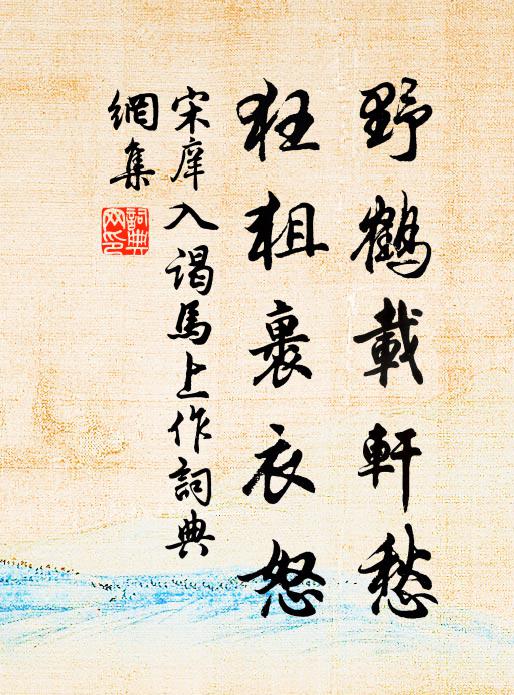 野鶴載軒愁
狂狙裹衣怒
宋庠入謁馬上作詞典
網集
詞典
网印